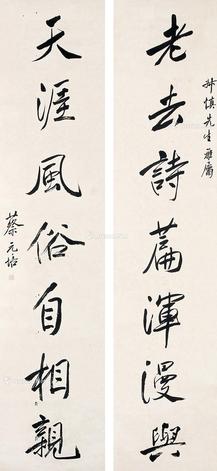 老去詩篇渾漫與
升慎先生雅屬
天涯風俗自相親
蔡元培